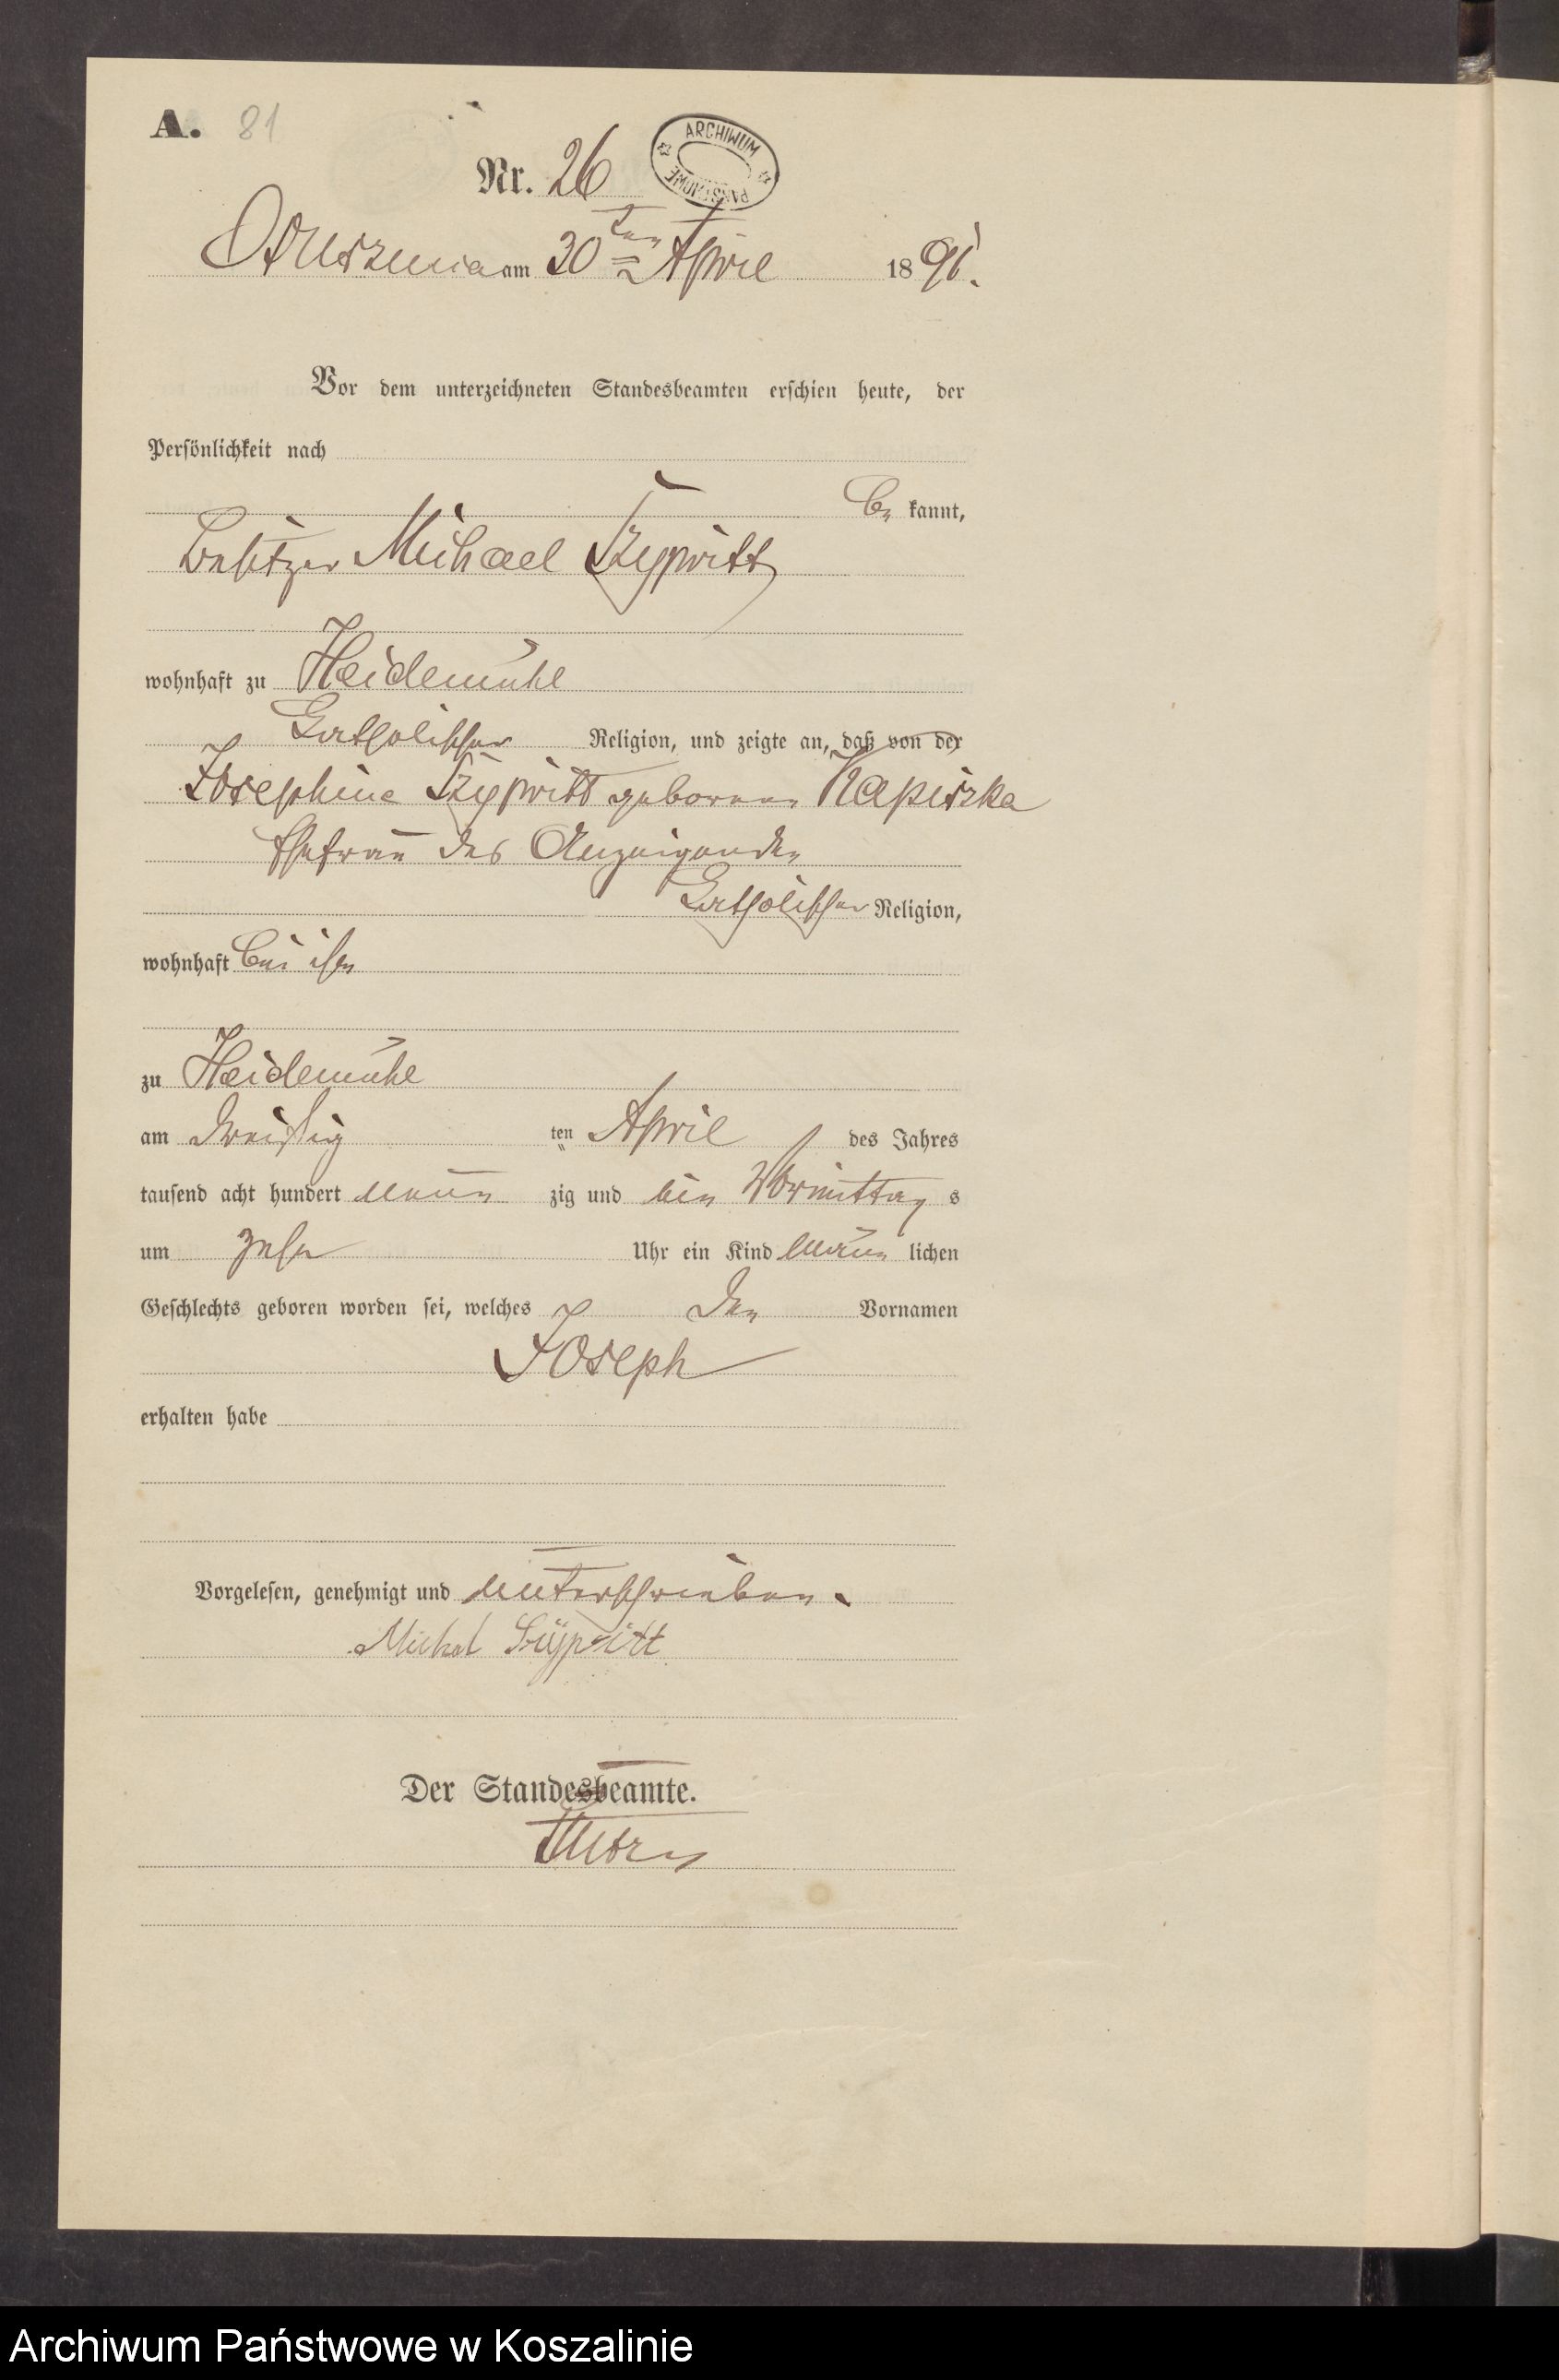 A. 81
Nr. 26
ARCHIWUM PAŃSTWOWE
am 30ten April 1891.
Vor dem unterzeichneten Standesbeamten erschien heute, der
Persönlichkeit nach
be kannt,
Besitzer Michael
wohnhaft zu Heidemühl
katholischer Religion, und zeigte an, daß von der
Josephine geborenen
Ehefrau des Anzeigenden
katholischer Religion,
wohnhaft bei ihm
zu Heidemühl
am dreißig ten April des Jahres
tausend acht hundert neun zig und ein Vormittag s
um zehn Uhr ein Kind männ lichen
Geschlechts geboren worden sei, welches den Vornamen
Joseph
erhalten habe
Vorgelesen, genehmigt und unterschrieben.
Der Standesbeamte.
Archiwum Państwowe w Koszalinie